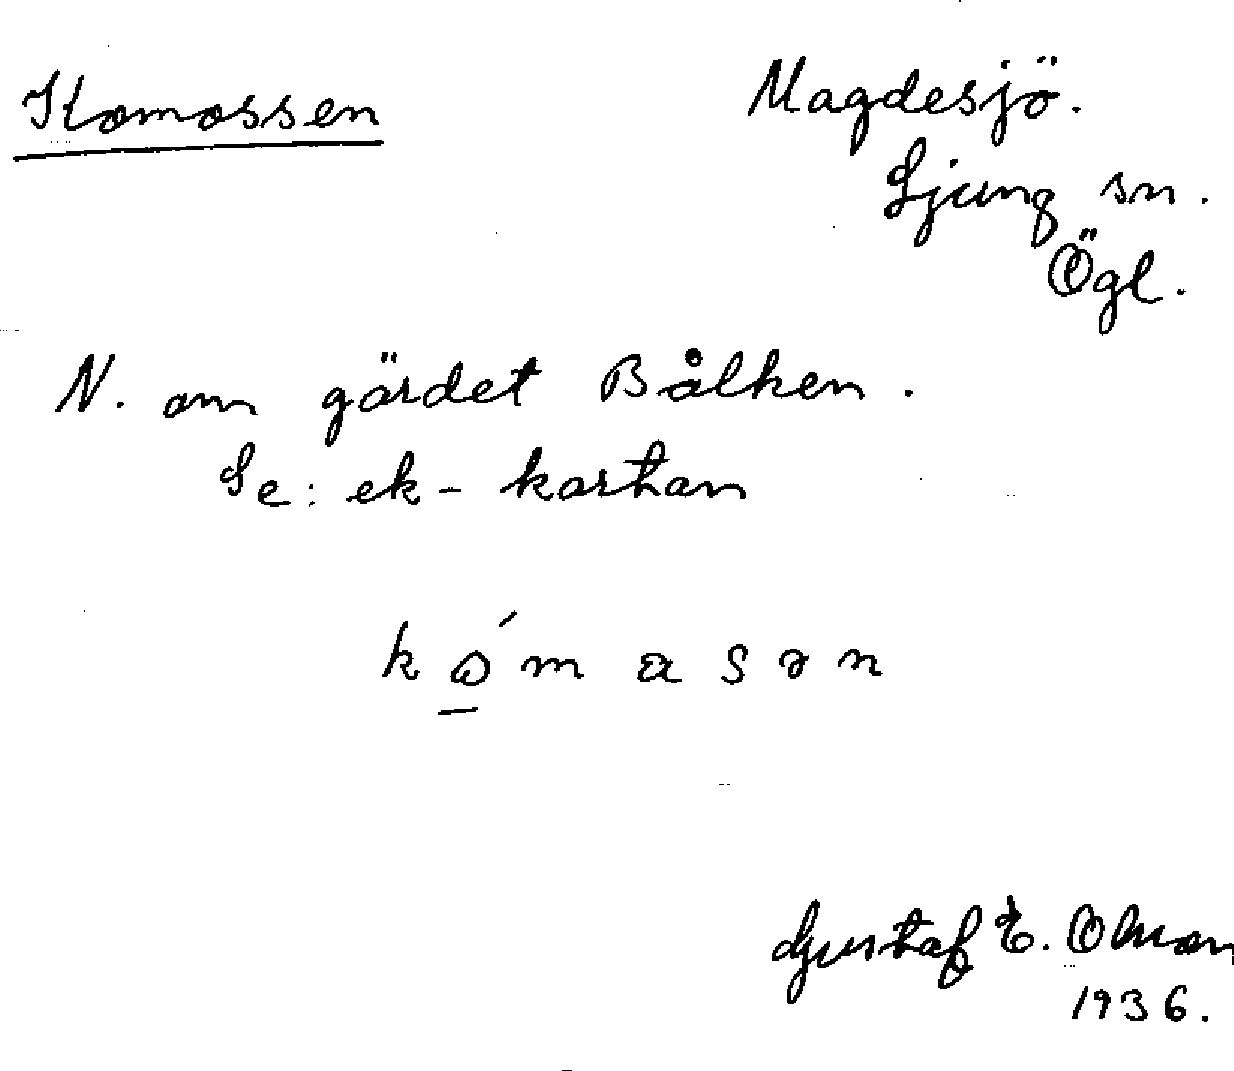 Komossen
Magdesjö.
Ljung sn.
Ögl.
N. om gärdet Bålken.
Se: ek-kartan
kǫ́masən
Gustaf E. Olsson
1936.